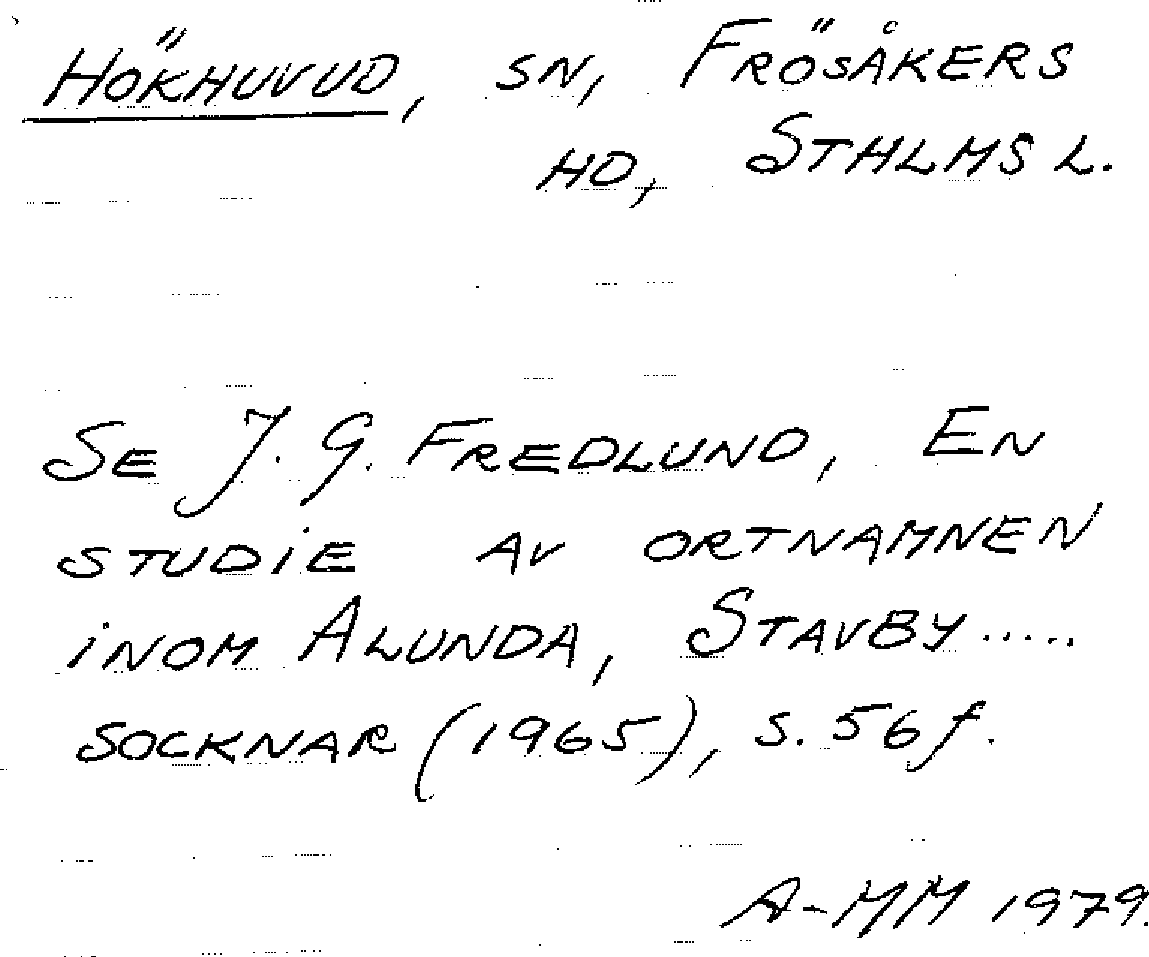 HÖKHUVUD, SN, FRÖSÅKERS
HD, STHLMS L.
SE J. G. FREDLUND, EN
STUDIE AV ORTNAMNEN
INOM ALUNDA, STAVBY.....
SOCKNAR (1965), S. 56 f.
A-MM 1979.